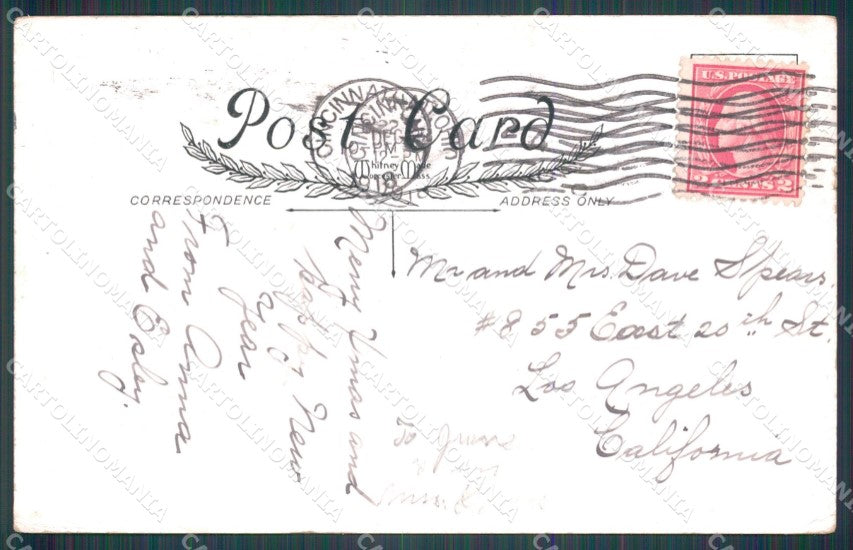 Post Card
U.S. POSTAGE
2 CENTS 2
CINCINNATI, OHIO
DEC
1918
Whitney Made
Worcester, Mass.
CORRESPONDENCE
ADDRESS ONLY
Merry Xmas and
Happy New
Year
From Anna
and
Mr and Mrs. Dave Spears.
#855 East 20th St.
Los Angeles
California
CARTOLINOMANIA